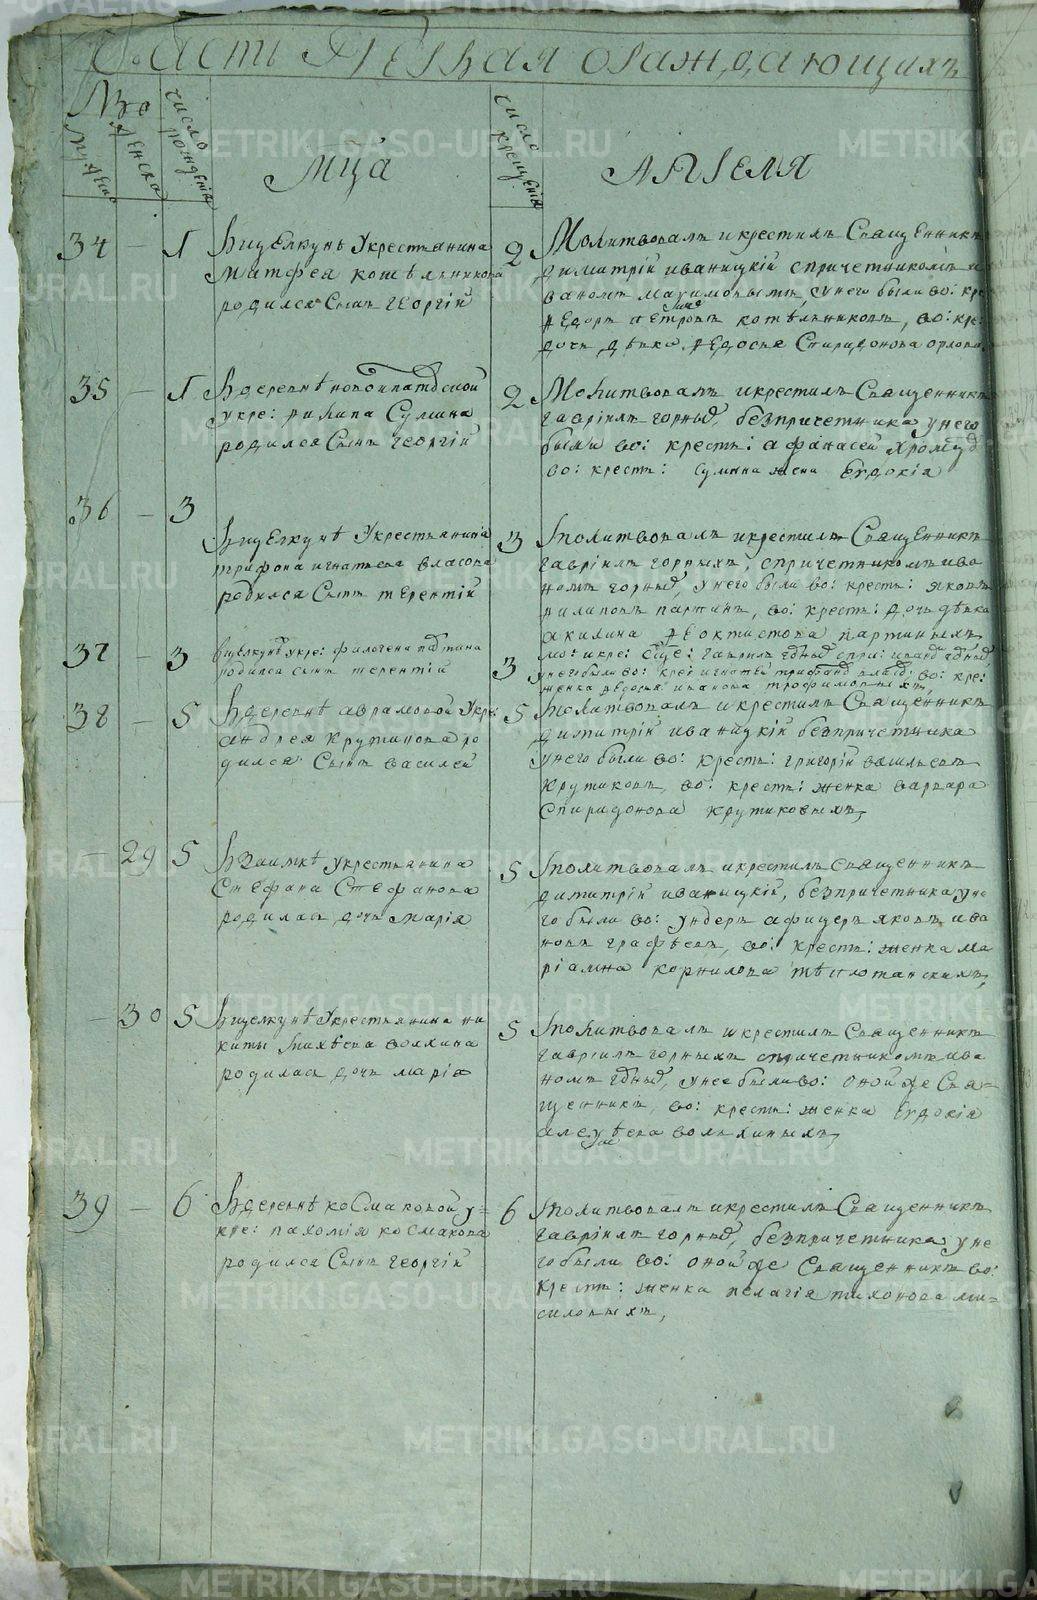 Часть Первая ораждающихъ
№ро
мужеска
Женска
число рождения
Мца
число крещения
АПРЕЛЯ
34 — 1 Вищелкунѣ Укрестьянина
Матфея котѣлникова
родился Сынъ Георгій
2 Молитвовалъ икрестилъ Священникъ
димитрій иваницкій спричетникомъ и
ваномъ Максимовымъ, унего были во: кре
Ѳедоръ Петровъ котѣлниковъ, во: кре:
дочь дѣвка Ѳедосья Спиридонова орлова
35 — 1 Вдеревнѣ новоипатовской
укре: филипа Сумина
родился Сынъ Георгій
2 Молитвовалъ икрестилъ Священникъ
гавріилъ горных, безпричетника унего
были во: кресть: афанасей
во: кресть: Сумина жена Евдокія
36 — 3
Вищелкунѣ Укрестьянина
трифона игнатьева власова
родился Сынъ терентій
3 молитвовалъ икрестилъ Священникъ
гавріилъ горныхъ, спричетникомъ ива
номъ горных, унего были во: кресть: яковъ
филиповъ партинъ, во: кресть: дочь дѣвка
акилина Ѳеоктистова партиныхъ
37 — 3 Вищелкунѣ укре:
родился сынъ терентій
3 мо: икре: Сще: гавріилъ
унего были во: крес игнатей во: кре:
женка Ѳедосья иванова трофимовыхъ,
38 — 5 Вдеревнѣ аврамовой Укре:
андрея Крутикова ро
дился Сынъ василей
5 молитвовалъ икрестилъ Священникъ
димитрій иваницкій безпричетника
унего были во: кресть: григорій васильевъ
Крутиковъ, во: кресть: женка варвара
Спиридонова Крутиковыхъ,
— 29 5 Взаимкѣ укрестьянина
Стефана Стефанова
родилась дочь марія
5 молитвовалъ икрестилъ Священникъ
димитрій иваницкій, безпричетника уне
го были во: ундеръ афицеръ яковъ ива
новъ графѣевъ, во: кресть: женка ма
ріамна корнилова
— 30 5 Вищелкунѣ Укрестьянина ни
киты михѣева волхина
родилась дочь марія
5 молитвовалъ икрестилъ Священникъ
гавріилъ горныхъ спричетникомъ ива
номъ унее были во: оной же Свя=
щенникъ, во: кресть: женка Евдокія
алеѯѣева волхиныхъ,
39 — 6 Вдеревнѣ коСмаковой у=
кре: пахомія коСмакова
родился Сынъ георгій
6 молитвовалъ икрестилъ Священникъ
гавріилъ горных, безпричетника уне
го были во: оной же Священникъ во:
кресть: женка пелагія тихонова ми=
силовыхъ,
METRIKI.GASO-URAL.RU